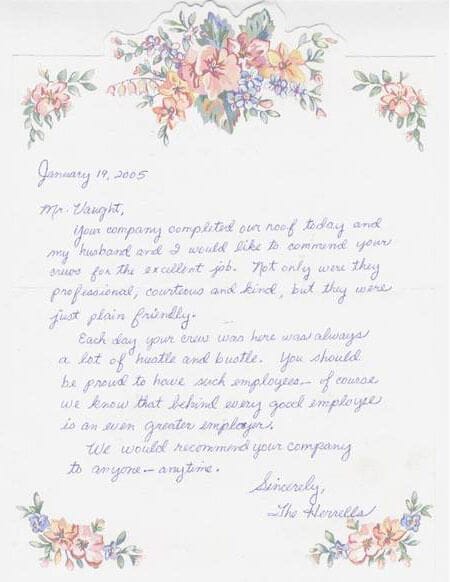 January 19, 2005
Mr. Vaught,
Your company completed our roof today and
my husband and I would like to commend your
crews for the excellent job. Not only were they
professional, courteous and kind, but they were
just plain friendly.
Each day your crew was here was always
a lot of hustle and bustle. You should
be proud to have such employees - of course
we know that behind every good employee
is an even greater employer.
We would recommend your company
to anyone - anytime.
Sincerely,
The Herrells